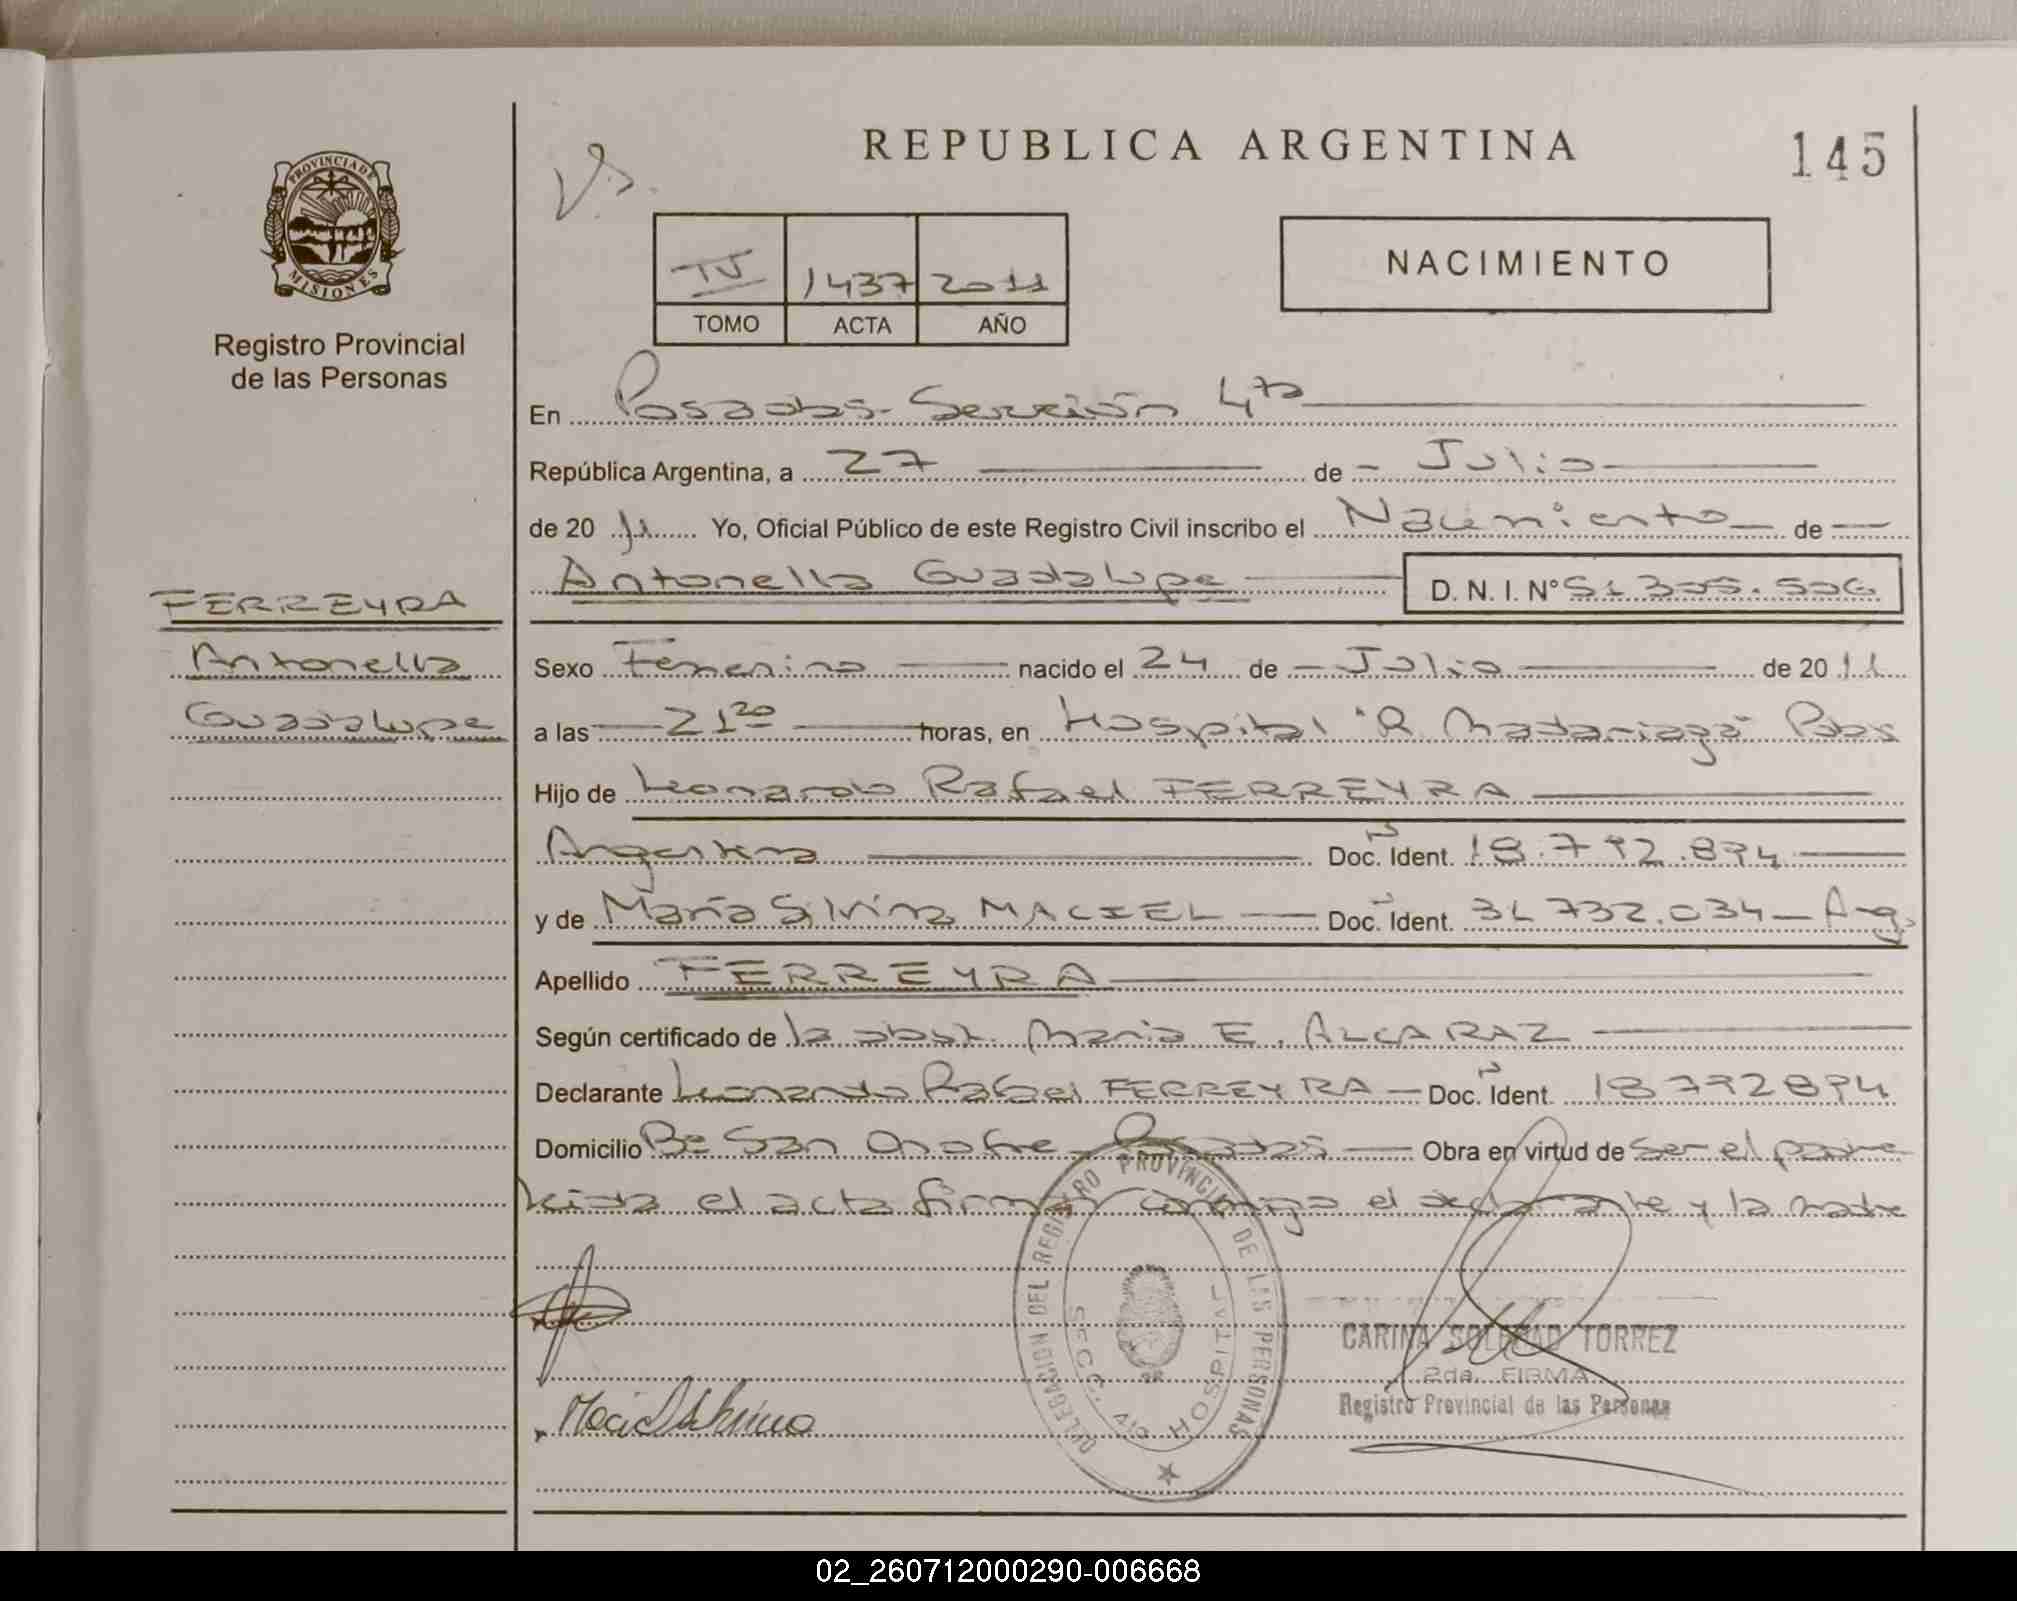 PROVINCIA DE
MISIONES
Registro Provincial
de las Personas
REPUBLICA ARGENTINA
145
NACIMIENTO
IV 1437 2011
TOMO ACTA AÑO
En Posadas - Sección 4ta
República Argentina, a 27 de Julio
de 2011 Yo, Oficial Público de este Registro Civil inscribo el Nacimiento de
Antonella Guadalupe D. N. I. Nº 51.305.506
FERREYRA
Antonella
Guadalupe
Sexo Femenino nacido el 24 de Julio de 2011
a las 21 20 horas, en Hospital "R. Madariaga" Pdas
Hijo de Leonardo Rafael FERREYRA
Argentina Doc. Ident. 18.792.894
y de María Silvina MACIEL Doc. Ident. 31.732.034 - Arg.
Apellido FERREYRA
Según certificado de la obst. Maria E. ALCARAZ
Declarante Leonardo Rafael FERREYRA - Doc. Ident 18792894
Domicilio Bº San Onofre - Posadas Obra en virtud de ser el padre
Leida el acta firman conmigo el declarante y la madre
DELEGACION DEL REGISTRO PROVINCIAL DE LAS PERSONAS
SECC. 4ta HOSPITAL
CARINA SOLEDAD TORREZ
2da. FIRMA
Registro Provincial de las Personas
Maciel Silvina
02_260712000290-006668